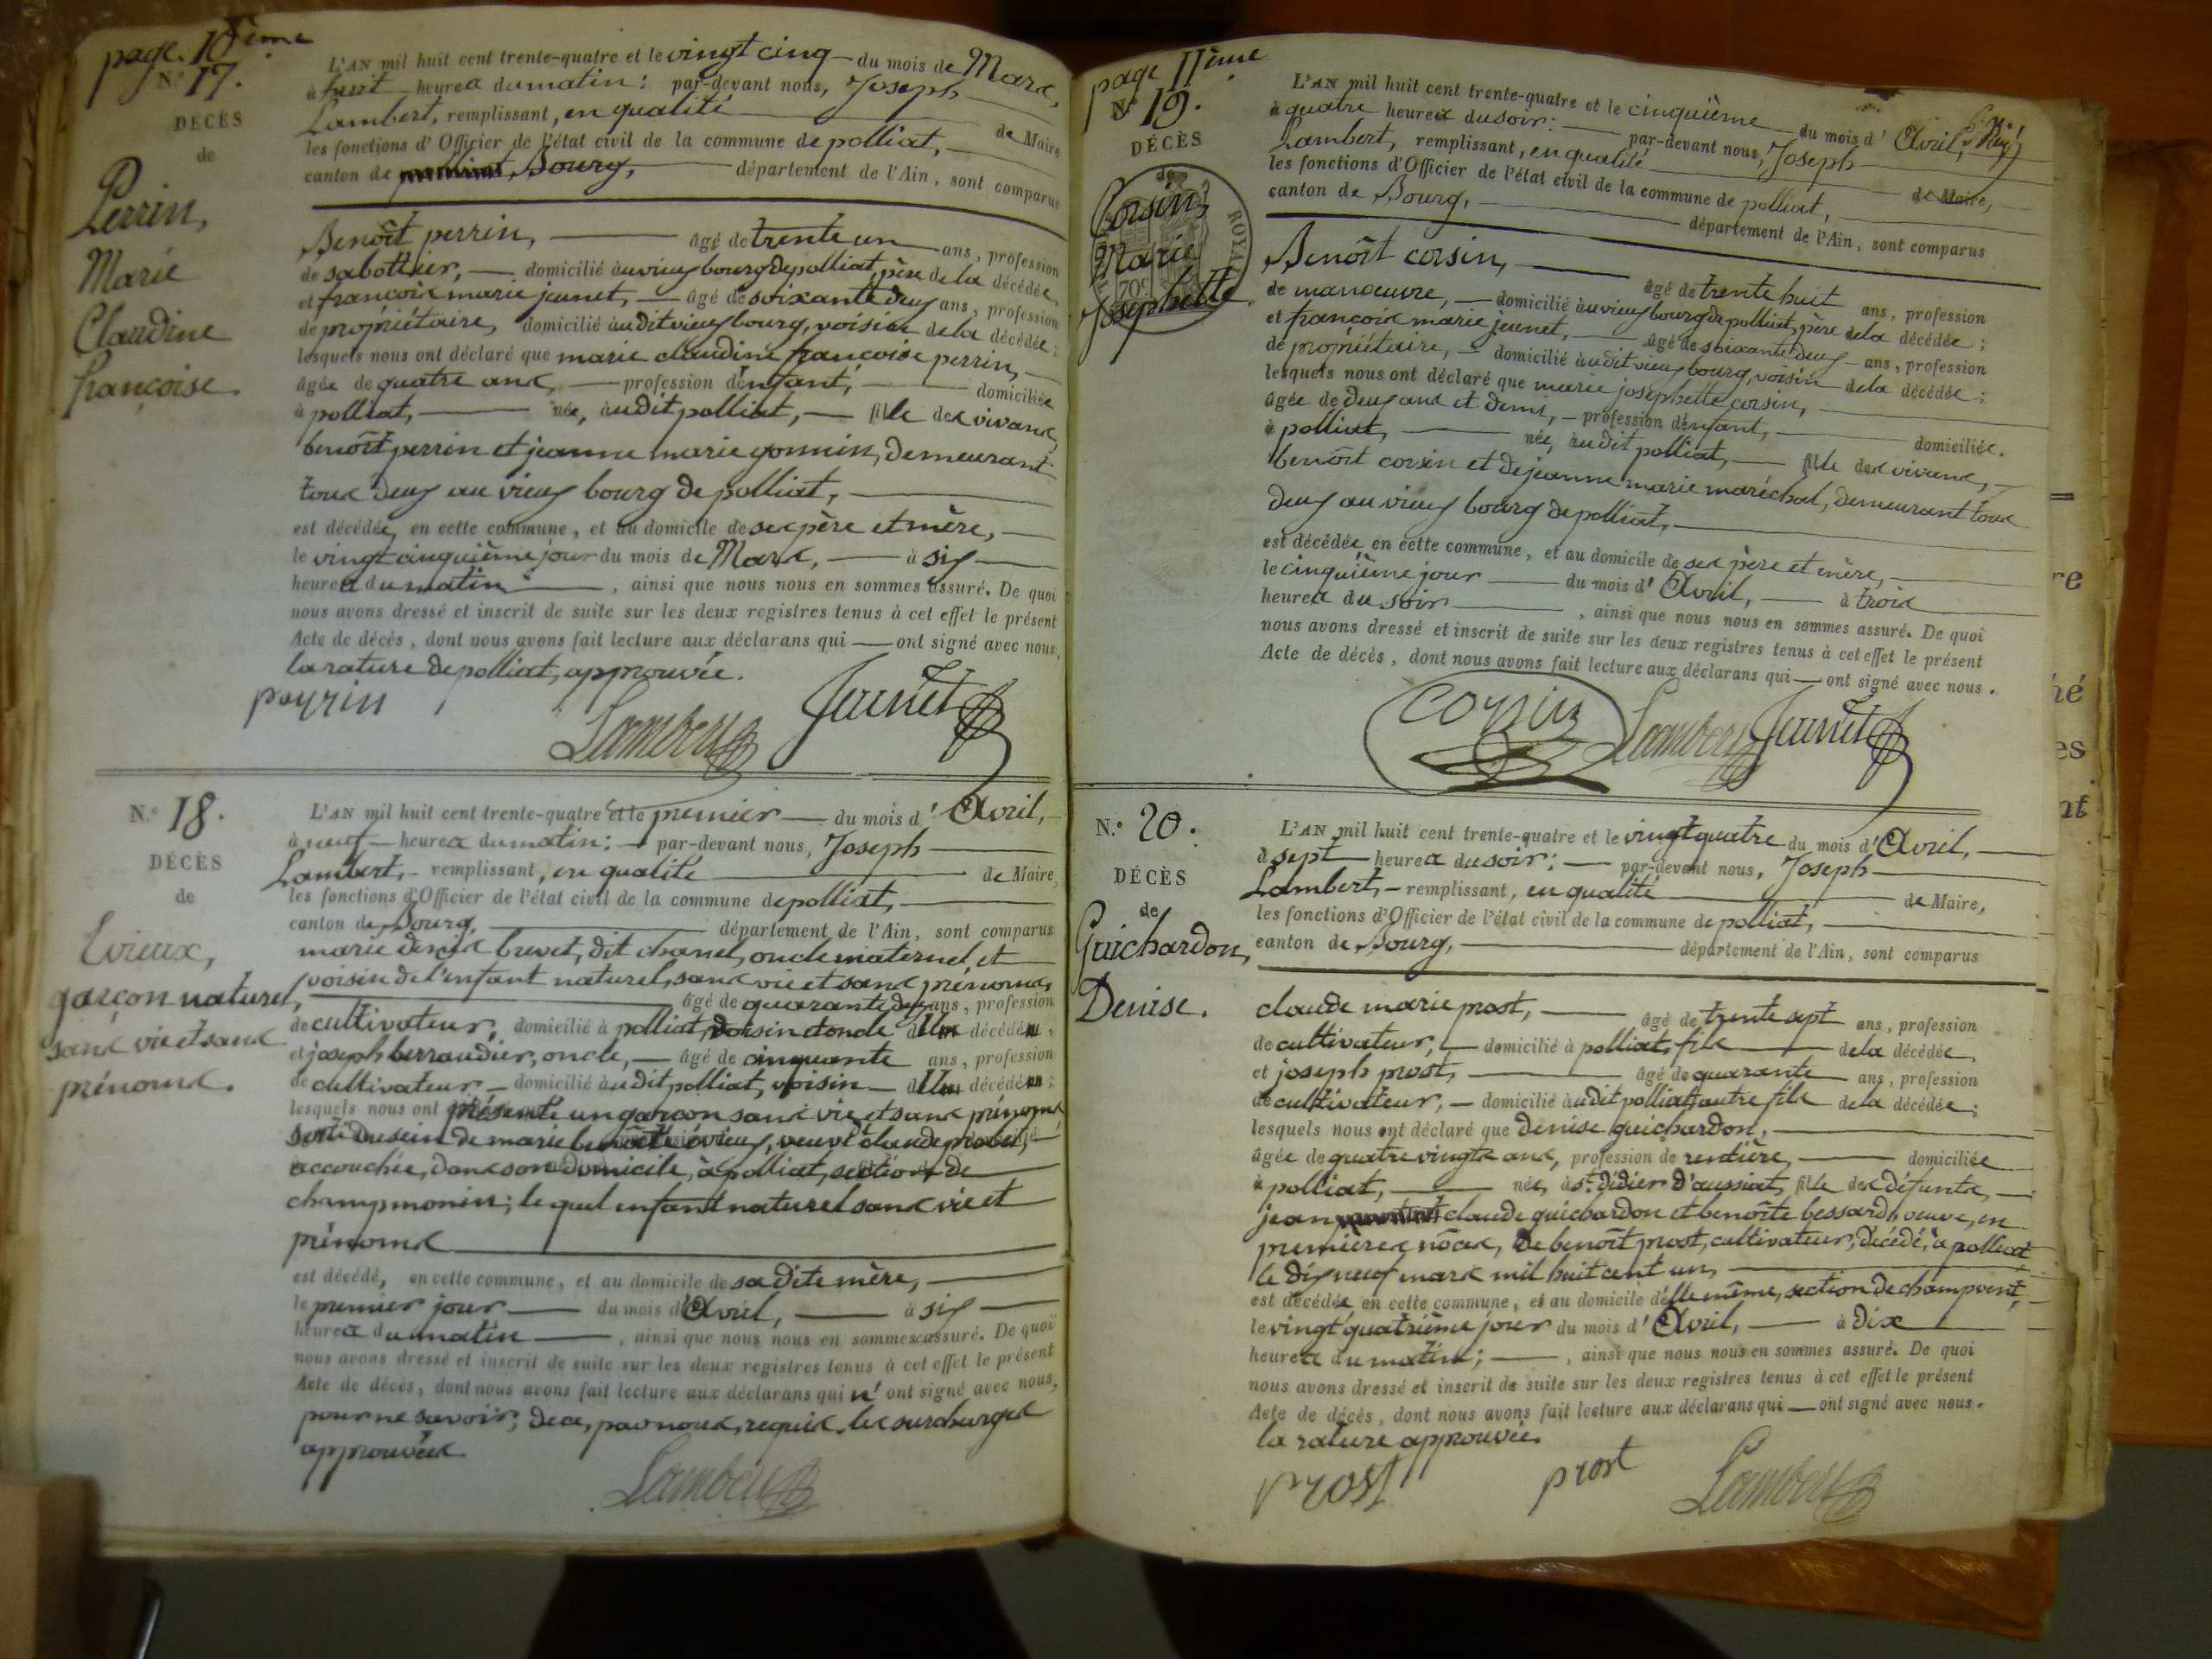 page 10ème
N.° 17.
DÉCÈS
de
Perrin,
Marie
Claudine
françoise.
L'AN mil huit cent trente-quatre et le vingt cinq du mois de Mars,
à huit heures du matin : par-devant nous, Joseph
Lambert, remplissant, en qualité de Maire
les fonctions d'Officier de l'état civil de la commune de polliat,
canton de Bourg, département de l'Ain, sont comparus
Benoît perrin, âgé de trente un ans, profession
de sabottier, domicilié au vieux bourg de polliat, père de la décédée,
et françois marie jeunet, âgé de soixante deux ans, profession
de propriétaire, domicilié au dit vieux bourg, voisin de la décédée ;
lesquels nous ont déclaré que marie claudine françoise perrin,
âgée de quatre ans, profession d'enfant, domiciliée
à polliat, née, au dit polliat, fille des vivans,
benoît perrin et jeanne marie gonnin, demeurant
tous deux au vieux bourg de polliat,
est décédée, en cette commune, et au domicile de ses père et mère,
le vingt cinquième jour du mois de Mars, à six
heures du matin, ainsi que nous nous en sommes assuré. De quoi
nous avons dressé et inscrit de suite sur les deux registres tenus à cet effet le présent
Acte de décès, dont nous avons fait lecture aux déclarans qui ont signé avec nous.
la rature de polliat, approuvée.
peyrin Lambert Jeunet
N.° 18.
DÉCÈS
de
Evieux,
garçon naturel,
sans vie et sans
prénoms.
L'AN mil huit cent trente-quatre et le premier du mois d'Avril,
à neuf heures du matin : par-devant nous, Joseph
Lambert, remplissant, en qualité de Maire,
les fonctions d'Officier de l'état civil de la commune de polliat,
canton de Bourg, département de l'Ain, sont comparus
marie denis brevet, dit chanel, oncle maternel, et
voisin de l'enfant naturel, sans vie et sans prénoms,
âgé de quarante deux ans, profession
de cultivateur, domicilié à polliat, voisin et oncle du décédé,
et joseph berraudier, oncle, âgé de cinquante ans, profession
de cultivateur domicilié au dit polliat, voisin du décédé ;
lesquels nous ont présenté un garçon sans vie et sans prénoms
sorti du sein de marie benoîte évieux, veuve claude probet,
accouchée, dans son domicile, à polliat, section de
champmonin; le quel enfant naturel sans vie et
prénoms
est décédé, en cette commune, et au domicile de sa dite mère,
le premier jour du mois d'Avril, à six
heures du matin, ainsi que nous nous en sommes assuré. De quoi
nous avons dressé et inscrit de suite sur les deux registres tenus à cet effet le présent
Acte de décès, dont nous avons fait lecture aux déclarans qui n'ont signé avec nous,
pour ne savoir; de ce, par nous, requis. les surcharges
approuvées.
Lambert
page 11ème
N.° 19.
DÉCÈS
de
Corsin,
Marie
Josephette.
ROYAL
70c
L'AN mil huit cent trente-quatre et le cinquième du mois d'Avril,
à quatre heures du soir : par-devant nous, Joseph
Lambert, remplissant, en qualité de Maire,
les fonctions d'Officier de l'état civil de la commune de polliat,
canton de Bourg, département de l'Ain, sont comparus
Benoît corsin, âgé de trente huit ans, profession
de manœuvre, domicilié au vieux bourg de polliat, père de la décédée ;
et françois marie jeunet, âgé de soixante deux ans, profession
de propriétaire, domicilié au dit vieux bourg, voisin de la décédée ;
lesquels nous ont déclaré que marie josephette corsin,
âgée de deux ans et demi, profession d'enfant, domiciliée.
à polliat, née, au dit polliat, fille des vivans,
benoît corsin et de jeanne marie maréchal, demeurant tous
deux au vieux bourg de polliat,
est décédée en cette commune, et au domicile de ses père et mère,
le cinquième jour du mois d'Avril, à trois
heures du soir, ainsi que nous nous en sommes assuré. De quoi
nous avons dressé et inscrit de suite sur les deux registres tenus à cet effet le présent
Acte de décès, dont nous avons fait lecture aux déclarans qui ont signé avec nous.
corsin Lambert Jeunet
N.° 20.
DÉCÈS
de
Guichardon,
Denise.
L'AN mil huit cent trente-quatre et le vingt quatre du mois d'Avril,
à sept heures du soir : par-devant nous, Joseph
Lambert, remplissant, en qualité de Maire,
les fonctions d'Officier de l'état civil de la commune de polliat,
canton de Bourg, département de l'Ain, sont comparus
claude marie prost, âgé de trente sept ans, profession
de cultivateur, domicilié à polliat, fils de la décédée,
et joseph prost, âgé de quarante ans, profession
de cultivateur, domicilié au dit polliat, autre fils de la décédée ;
lesquels nous ont déclaré que denise guichardon,
âgée de quatre vingts ans, profession de rentière, domiciliée
à polliat, née, à st. didier d'aussiat, fille des défunts,
jean claude guichardon et benoîte bessard, veuve, en
premières nôces, de benoît prost, cultivateur, décédé, à polliat
le dix neuf mars mil huit cent un,
est décédée, en cette commune, et au domicile d'elle même, section de champvent,
le vingt quatrième jour du mois d'Avril, à dix
heures du matin; , ainsi que nous nous en sommes assuré. De quoi
nous avons dressé et inscrit de suite sur les deux registres tenus à cet effet le présent
Acte de décès, dont nous avons fait lecture aux déclarans qui ont signé avec nous.
la rature approuvée.
prost prost Lambert